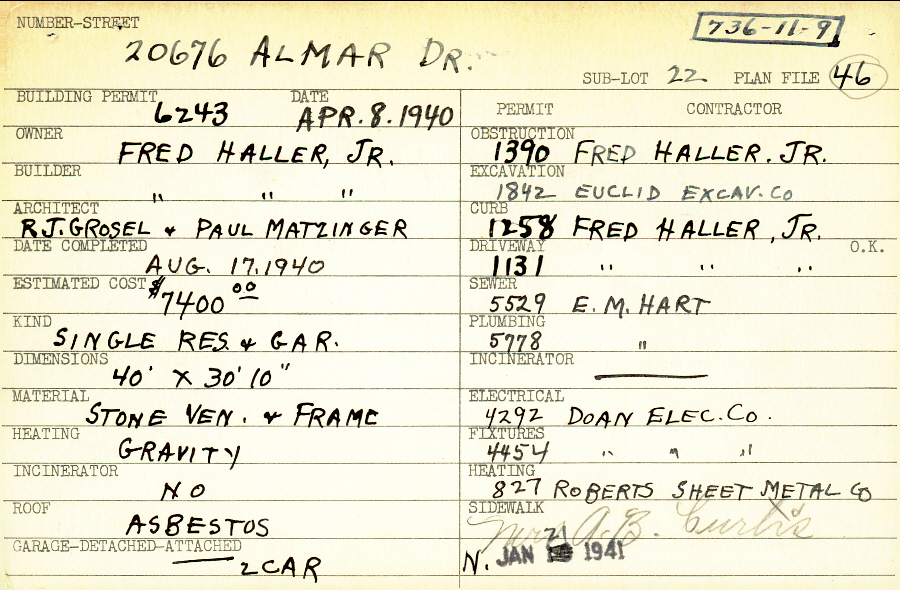 NUMBER-STREET
736-11-9
20676 ALMAR DR.
SUB-LOT 22 PLAN FILE 46
BUILDING PERMIT DATE
6243 APR. 8. 1940
OWNER
FRED HALLER, JR.
BUILDER
" " "
ARCHITECT
R.J. GROSEL & PAUL MATZINGER
DATE COMPLETED
AUG. 17. 1940
ESTIMATED COST
$7400 00
KIND
SINGLE RES. & GAR.
DIMENSIONS
40' X 30' 10"
MATERIAL
STONE VEN. & FRAME
HEATING
GRAVITY
INCINERATOR
NO
ROOF
ASBESTOS
GARAGE-DETACHED-ATTACHED
2 CAR
PERMIT CONTRACTOR
OBSTRUCTION
1390 FRED HALLER. JR.
EXCAVATION
1842 EUCLID EXCAV. CO
CURB
1258 FRED HALLER, JR.
DRIVEWAY O.K.
1131 " " "
SEWER
5529 E. M. HART
PLUMBING
5778 "
INCINERATOR
ELECTRICAL
4292 DOAN ELEC. CO.
FIXTURES
4454 " " "
HEATING
827 ROBERTS SHEET METAL CO
SIDEWALK
Mrs A. B. Curtis
21
N. JAN 1941